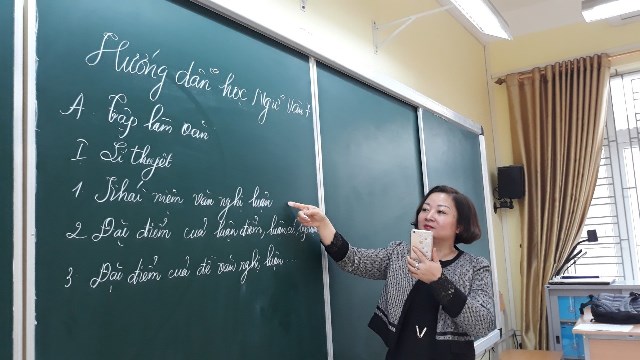 Hướng dẫn học Ngữ Văn 7
A. Tập làm văn
I Lí thuyết
1 Khái niệm văn nghị luận
2 Đặc điểm của luận điểm, luận cứ,
3 Đặc điểm của đề văn nghị luận...